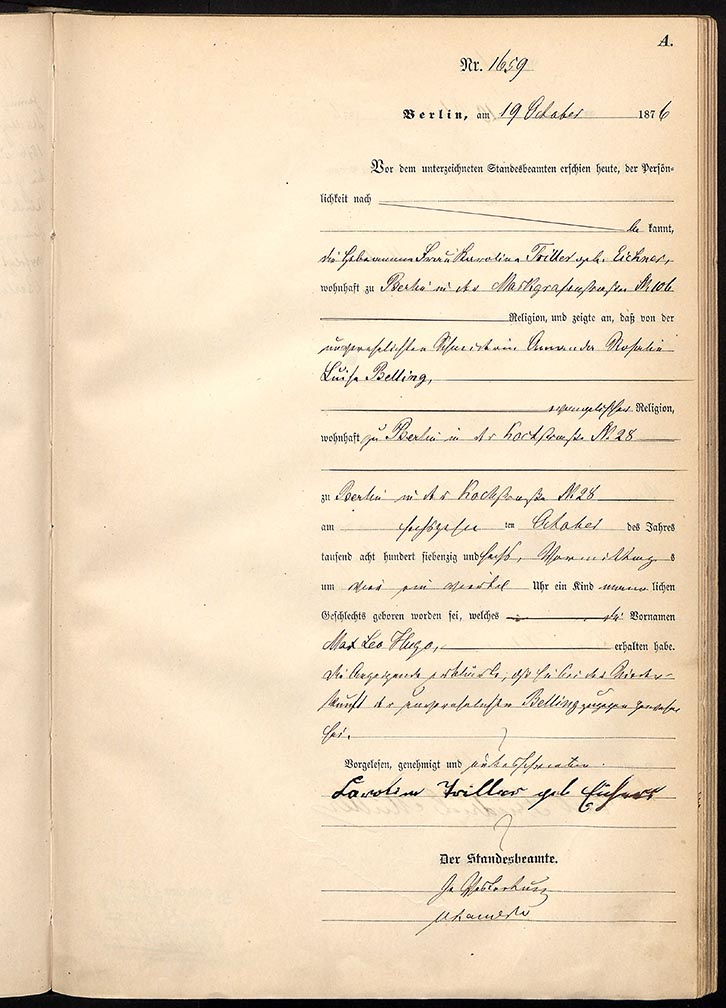 A.
Nr. 1659
Berlin, am 19 October 1876
Vor dem unterzeichneten Standesbeamten erschien heute, der Persön-
lichkeit nach
be kannt,
die Hebeamme Frau Karoline Triller geb. Eichner,
wohnhaft zu Berlin in der Markgrafenstraße № 106
Religion, und zeigte an, daß von der
unverehelichten Schneiderin Amanda Rosalie
Luise Belling,
evangelischer Religion,
wohnhaft zu Berlin in der Kochstraße № 28
zu Berlin in der Kochstraße № 28
am sechszehn ten October des Jahres
tausend acht hundert siebenzig und sechs, Vormittags
um drei ein viertel Uhr ein Kind männlichen
Geschlechts geboren worden sei, welches die Vornamen
Max Leo Hugo, erhalten habe.
Die Anzeigende erklärte, daß sie bei der Nieder-
kunft der unverehelichten Belling zugegen gewesen
sei.
Vorgelesen, genehmigt und unterschrieben.
Caroline Triller geb Eichner
Der Standesbeamte.
In Vertretung